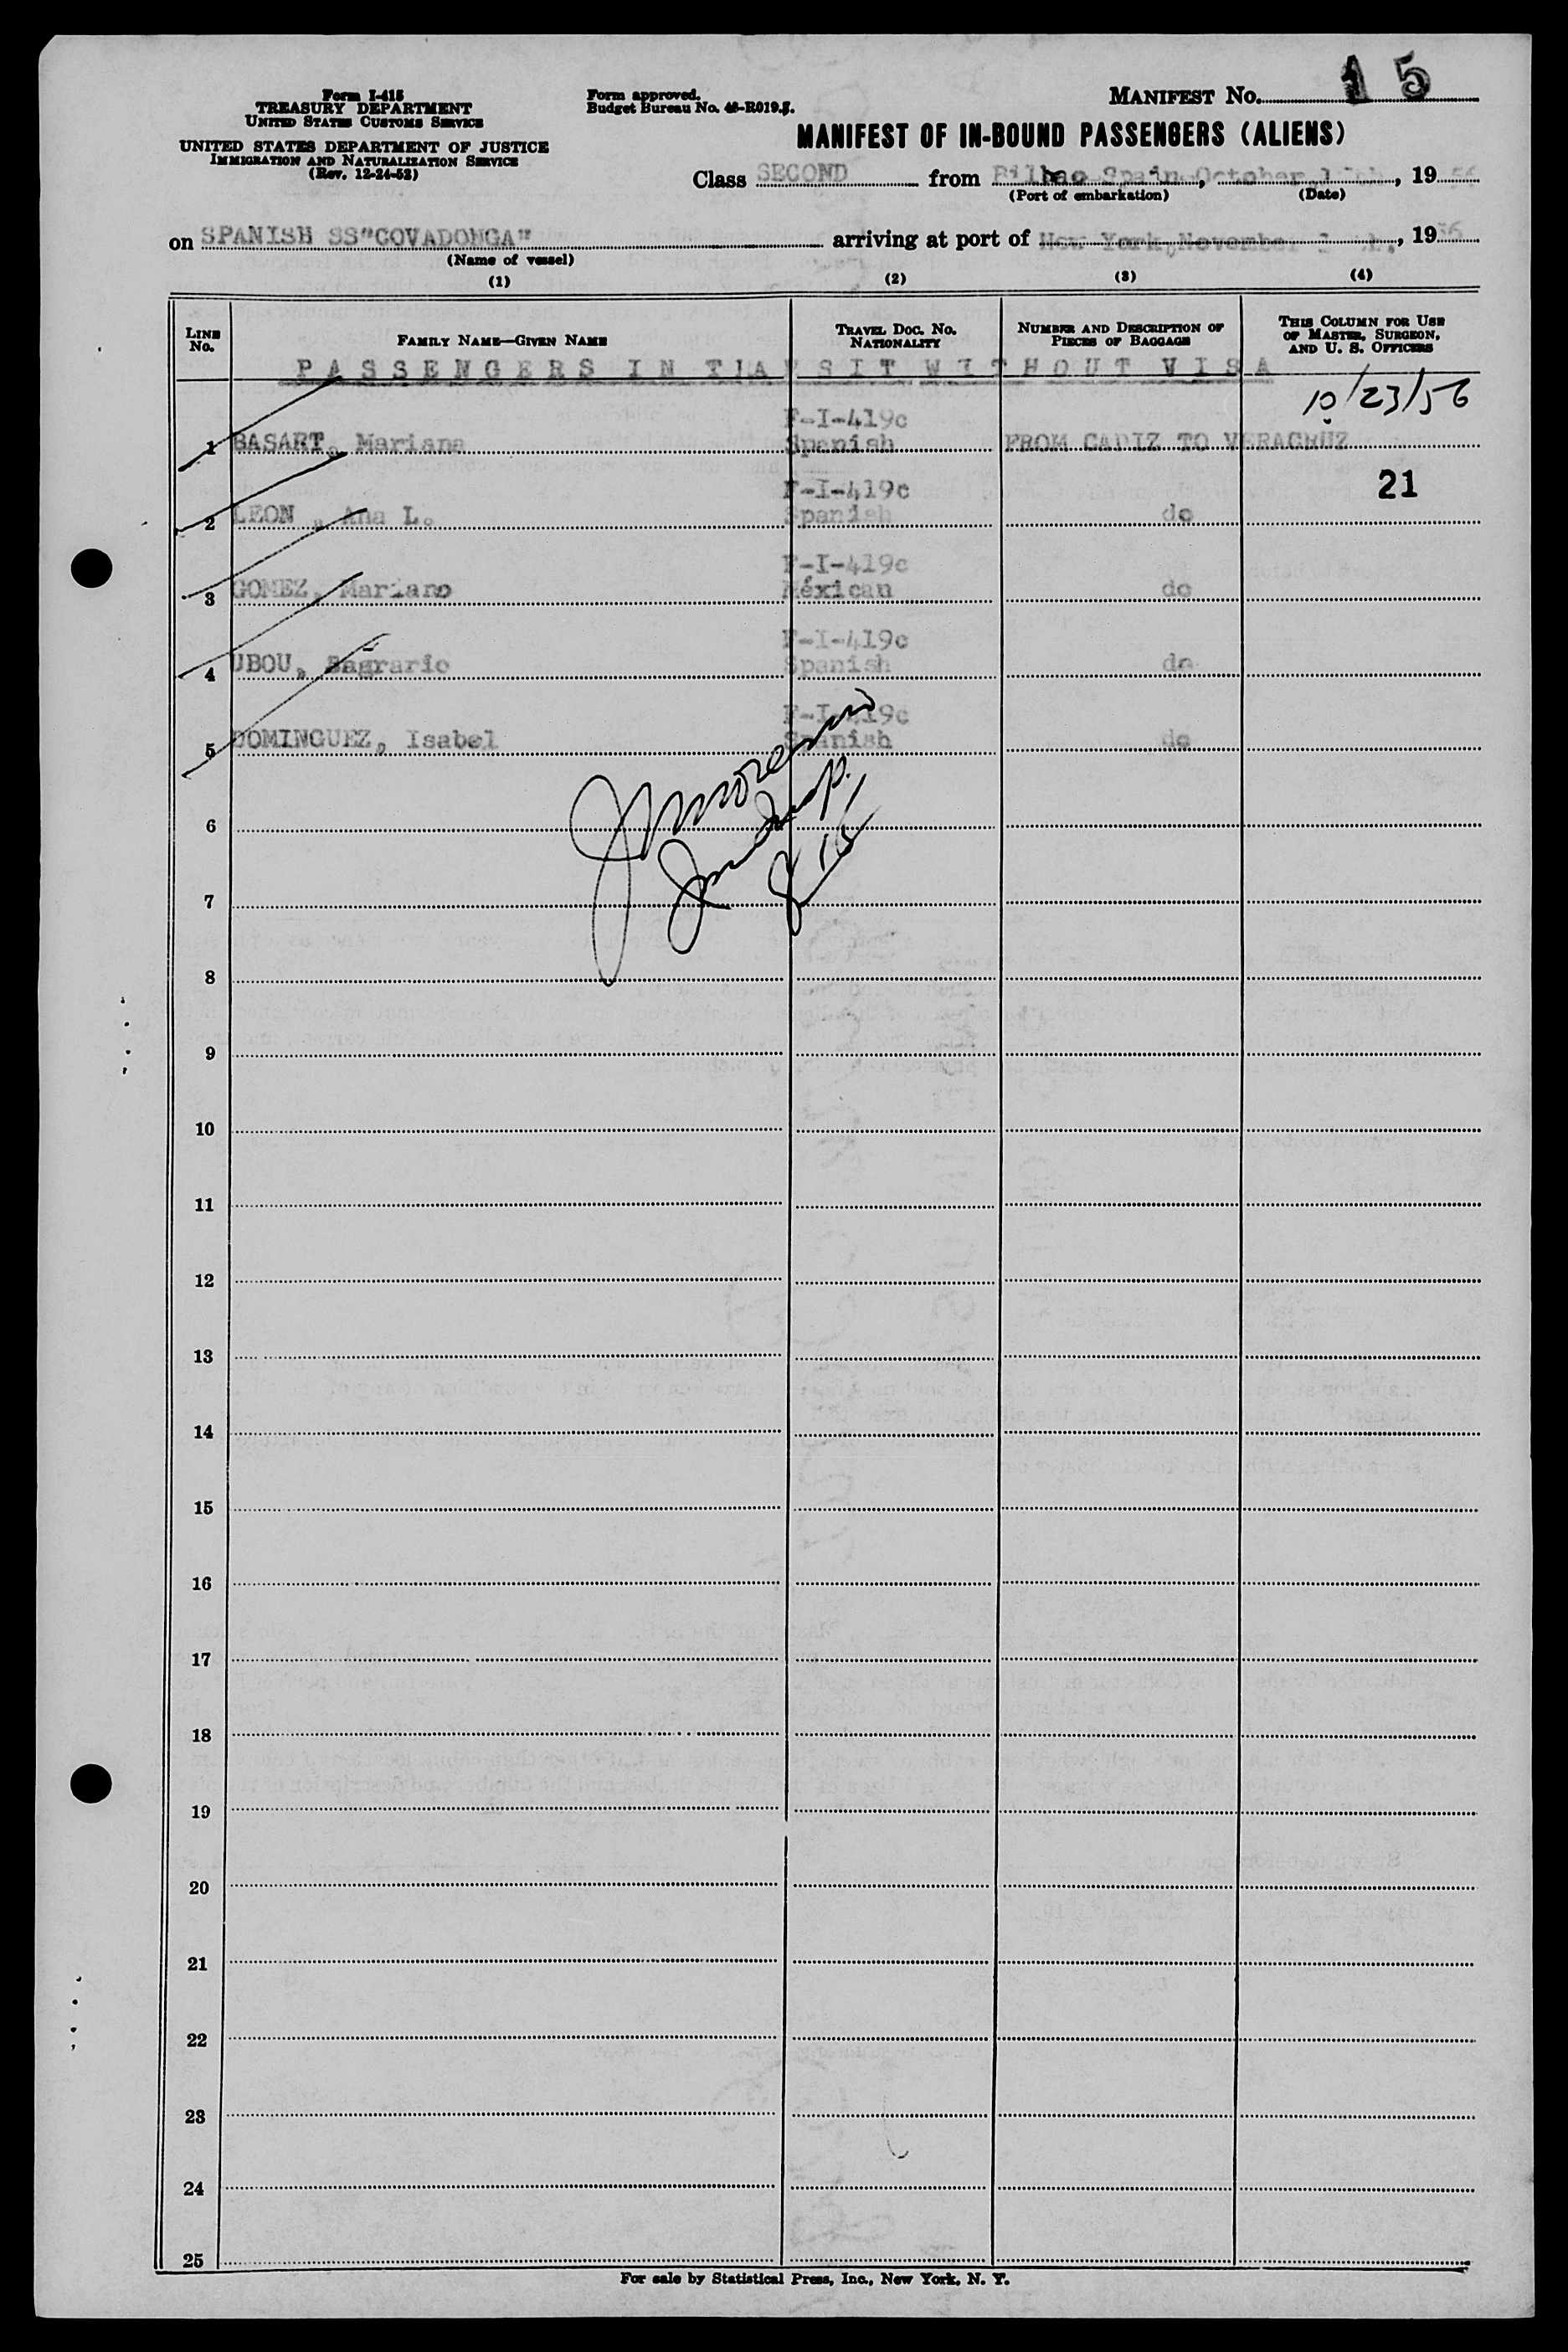 Form I-415
TREASURY DEPARTMENT
UNITED STATES CUSTOMS SERVICE
UNITED STATES DEPARTMENT OF JUSTICE
IMMIGRATION AND NATURALIZATION SERVICE
(Rev. 12-24-52)
Form approved.
Budget Bureau No. 43-R019.5.
MANIFEST NO. 15
MANIFEST OF IN-BOUND PASSENGERS (ALIENS)
Class SECOND from Bilbao Spain October, 1956
(Port of embarkation) (Date)
on SPANISH SS"COVADONGA" arriving at port of New York, November, 1956
(Name of vessel)
(1) (2) (3) (4)
LINE NO. FAMILY NAME—GIVEN NAME TRAVEL DOC. NO. NATIONALITY NUMBER AND DESCRIPTION OF PIECES OF BAGGAGE THIS COLUMN FOR USE OF MASTER, SURGEON, AND U. S. OFFICERS
PASSENGERS IN TRANSIT WITHOUT VISA
10/23/56
F-I-419c
1 BASART, Mariana Spanish FROM CADIZ TO VERACRUZ
F-I-419c 21
2 LEON, Ana L. Spanish do
F-I-419c
3 GOMEZ, Mariano Méxican do
F-I-419c
4 UBOU, Sagrario Spanish do
F-I-419c
5 DOMINGUEZ, Isabel Spanish do
6
7
8
9
10
11
12
13
14
15
16
17
18
19
20
21
22
23
24
25
For sale by Statistical Press, Inc., New York, N. Y.